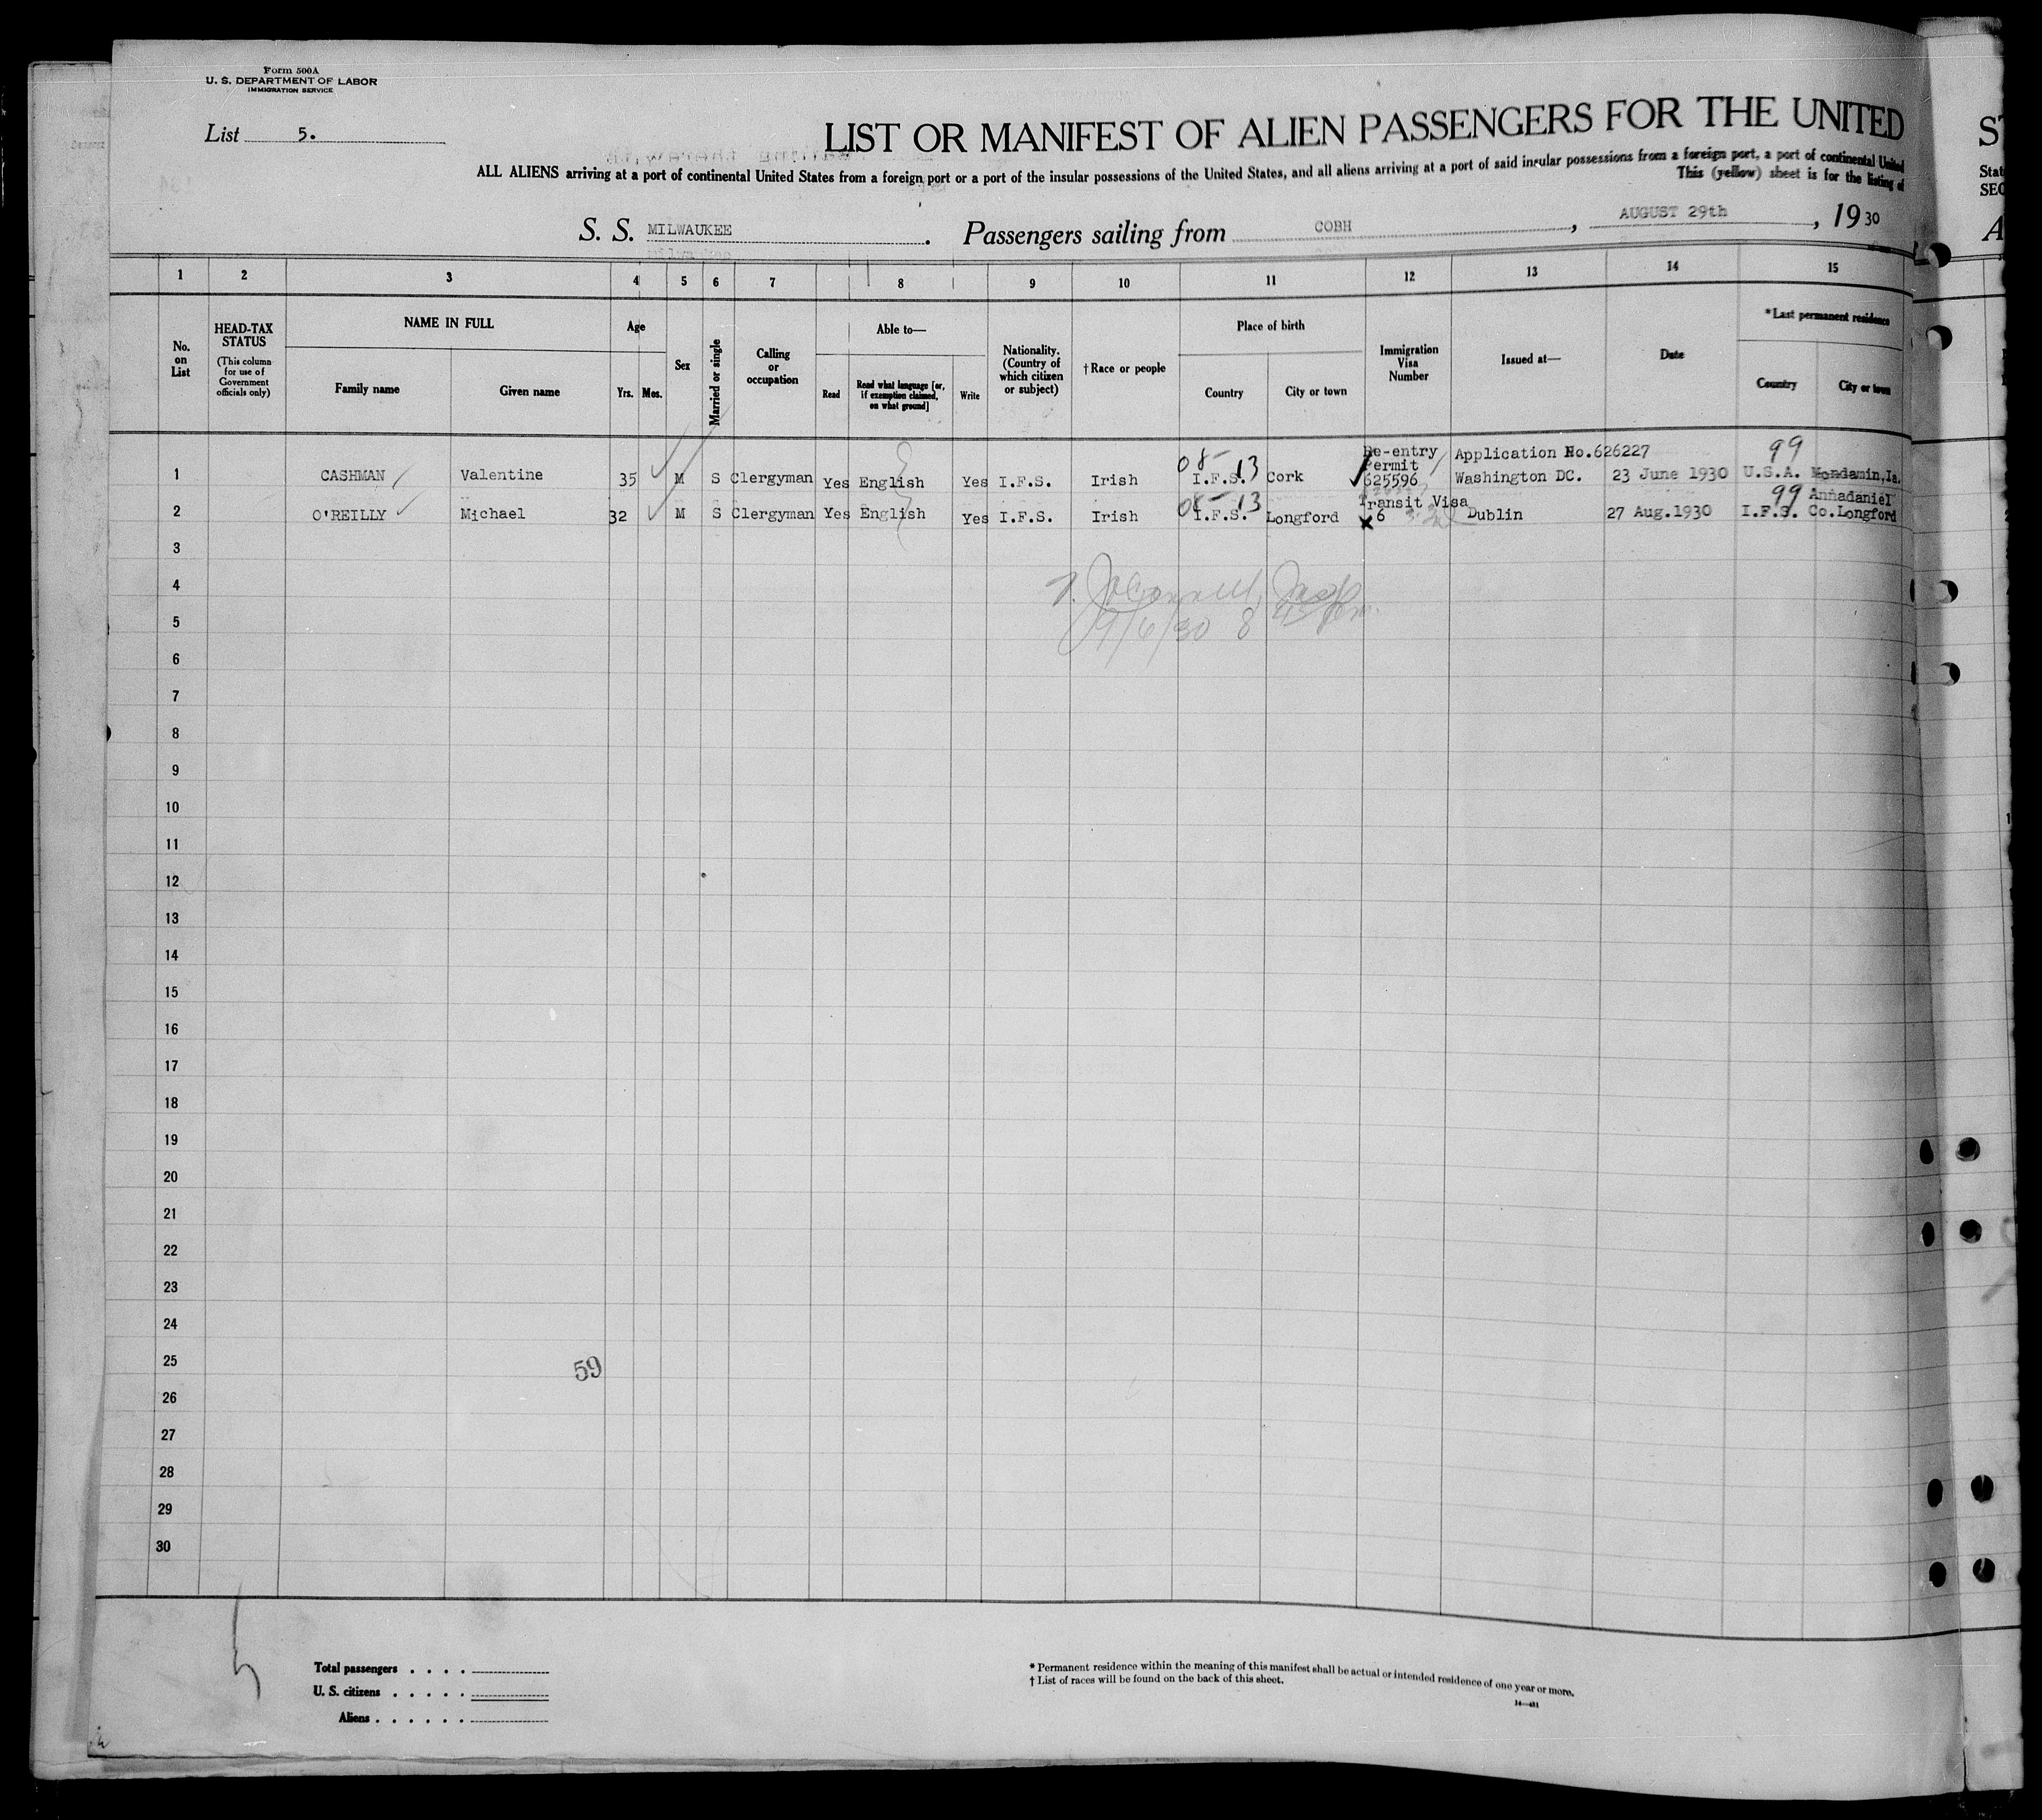 Form 500A
U. S. DEPARTMENT OF LABOR
IMMIGRATION SERVICE
List 5.
LIST OR MANIFEST OF ALIEN PASSENGERS FOR THE UNITED
ALL ALIENS arriving at a port of continental United States from a foreign port or a port of the insular possessions of the United States, and all aliens arriving at a port of said insular possessions from a foreign port, a port of continental United
This (yellow) sheet is for the listing of
S. S. MILWAUKEE. Passengers sailing from COBH, AUGUST 29th, 1930
1 2 3 4 5 6 7 8 9 10 11 12 13 14 15
No. on List
HEAD-TAX STATUS
(This column for use of Government officials only)
NAME IN FULL
Family name Given name
Age
Yrs. Mos.
Sex
Married or single
Calling or occupation
Able to—
Read
Read what language [or, if exemption claimed, on what ground]
Write
Nationality. (Country of which citizen or subject)
†Race or people
Place of birth
Country City or town
Immigration Visa Number
Issued at—
Date
*Last permanent residence
Country City or town
Re-entry Permit Application No.626227 99
08-13
1 CASHMAN Valentine 35 M S Clergyman Yes English Yes I.F.S. Irish I.F.S. Cork 625596 Washington DC. 23 June 1930 U.S.A. Mondamin,Ia.
08-13 Transit Visa 99 Annadaniel
2 O'REILLY Michael 32 M S Clergyman Yes English Yes I.F.S. Irish I.F.S. Longford 6 Dublin 27 Aug.1930 I.F.S. Co.Longford
3
4
5
9/6/30 8
6
7
8
9
10
11
12
13
14
15
16
17
18
19
20
21
22
23
24
25
59
26
27
28
29
30
Total passengers . . . .
U. S. citizens . . . . .
Aliens . . . . . .
* Permanent residence within the meaning of this manifest shall be actual or intended residence of one year or more.
† List of races will be found on the back of this sheet.